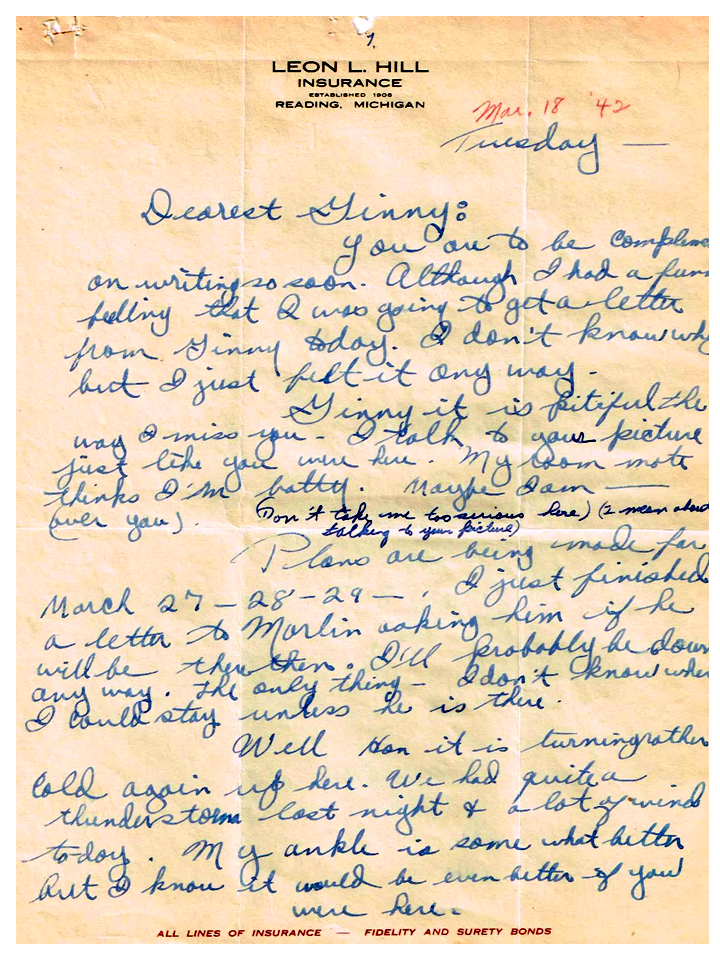 7.
LEON L. HILL
INSURANCE
ESTABLISHED 1906
READING, MICHIGAN
Mar. 18 '42
Tuesday —
Dearest Ginny:
You are to be complime
on writing so soon. Although I had a funn
feeling that I was going to get a letter
from Ginny today. I don't know why
but I just felt it any way.
Ginny it is pitiful the
way I miss you - I talk to your picture
just like you were here. My room mate
thinks I'm batty. Maybe I am —
(over you). (Don't take me too serious here) (I mean about
talking to your picture)
Plans are being made for
March 27 - 28 - 29 - . I just finished
a letter to Marlin asking him if he
will be there then. I'll probably be down
any way. The only thing - I don't know wher
I could stay unless he is there.
Well Hon it is turning rather
cold again up here. We had quite a
thunderstorm last night & a lot of wind
today. My ankle is some what better
but I know it would be even better if you
were here.
ALL LINES OF INSURANCE — FIDELITY AND SURETY BONDS